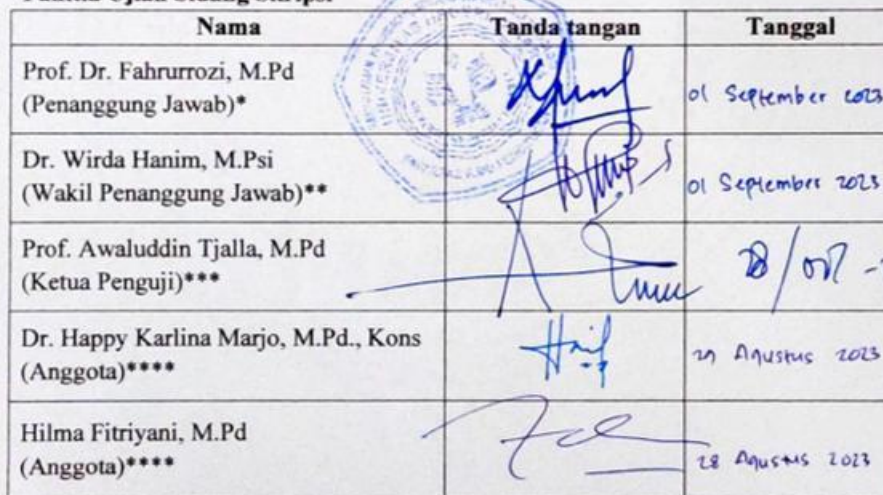 Panitia Ujian Sidang Skripsi
Nama Tanda tangan Tanggal
Prof. Dr. Fahrurrozi, M.Pd
(Penanggung Jawab)* 01 September 2023
Dr. Wirda Hanim, M.Psi
(Wakil Penanggung Jawab)** 01 September 2023
Prof. Awaluddin Tjalla, M.Pd
(Ketua Penguji)***
Dr. Happy Karlina Marjo, M.Pd., Kons
(Anggota)**** 29 Agustus 2023
Hilma Fitriyani, M.Pd
(Anggota)**** 28 Agustus 2023